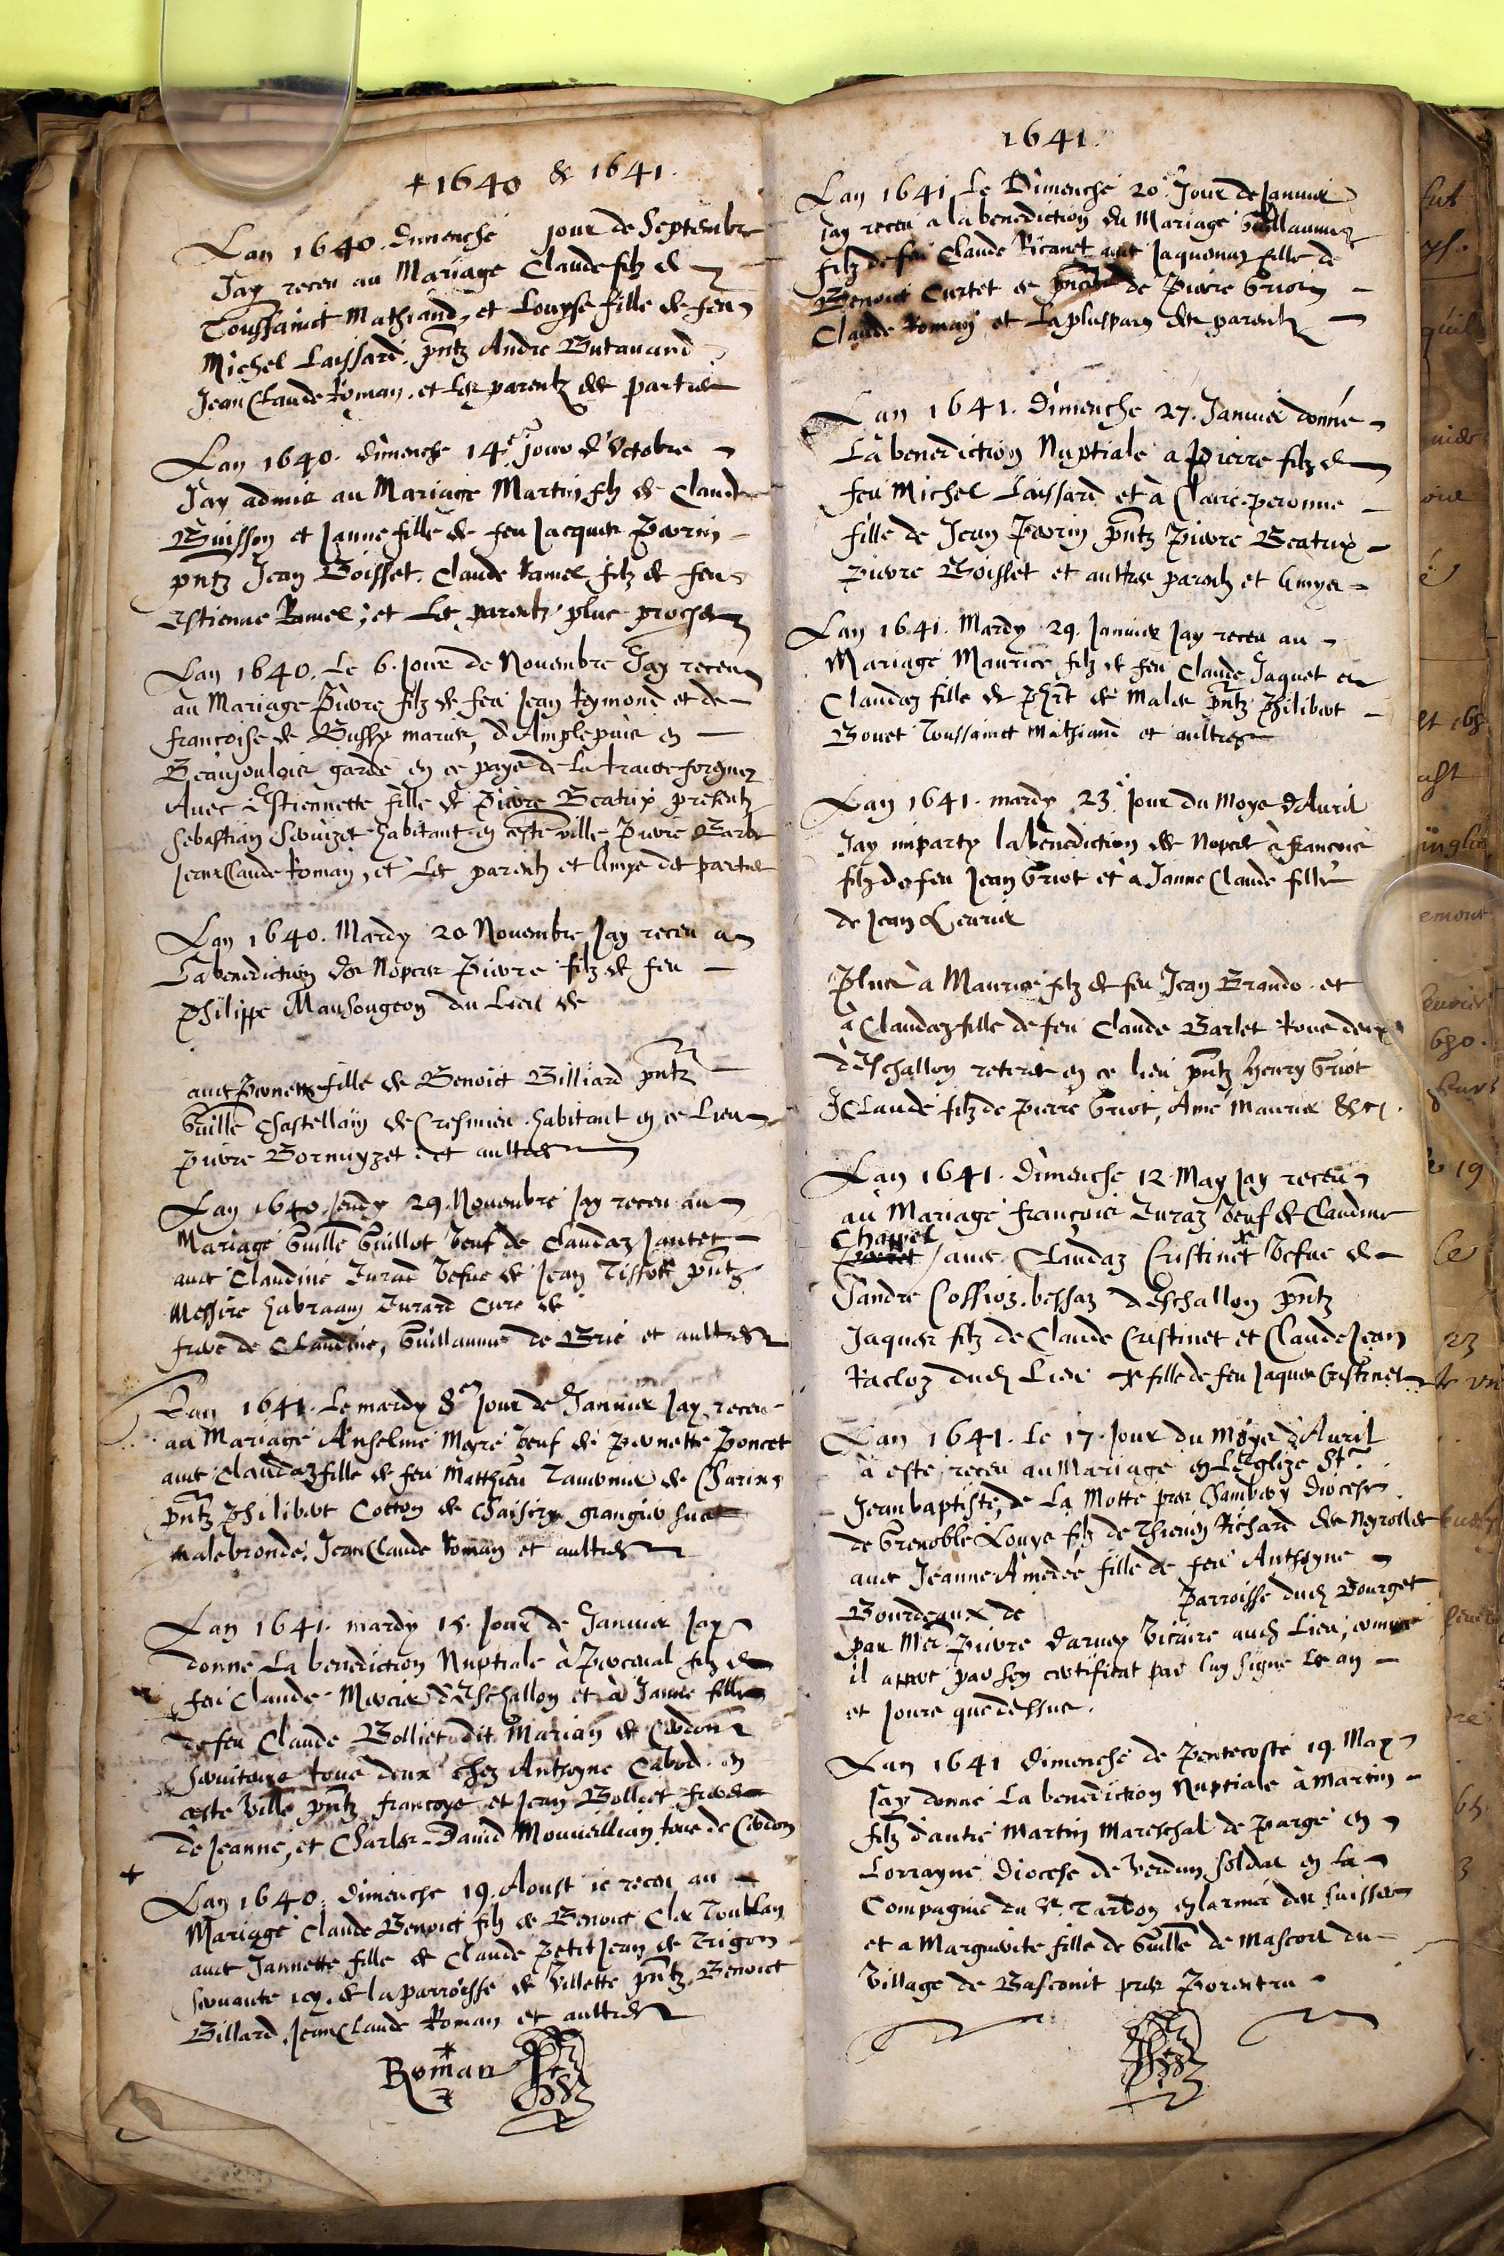 + 1640 & 1641.
Lan 1640. dimenche jour de Septembre
Jay receu au Mariage Claude filz de
Toussainct Mathiand, et Louyse fille de feu
Michel Laissard. pntz Andre Butauand
Jean Claude Roman. et les parentz des parties
Lan 1640. dimenche 14e. jour d'Octobre
Jay admis au Mariage Martin filz de Claude
Buisson et Janne fille de feu Jacques Perrin
pntz Jean Boisset. Claude Ramel filz de feu
Estienne Ramel; et les parentz plus proches
Lan 1640. Le 6. jour de Nouembre Jay receu
au Mariage Pierre filz de feu Jean Reymond et de
francoise de Bussy maries, d'Amplepuis en
Beaujoulois garde en ce pays de la traicte
Auec Estiennette fille de Pierre Beatrix presentz
Sebastian habitant en ceste ville Pierre
Jean Claude Roman, et les parentz et Amys des parties
Lan 1640. Mardy 20 Nouembre Jay receu a
La benediction des Nopces Pierre filz de feu
Philippe Mansongeon du Lieu de
auec Pernette fille de Benoict Billiard pntz
Guille Chastellain de habitant en ce Lieu
Pierre Bornuyzet et aultres
Lan 1640. Jeudy 29. Nouembre Jay receu au
Mariage Guille Guillot veuf de Claudaz Jantet
auec Claudine Jurad vefue de Jean Tissot pntz
Messire habraam Jurard Cure de
frere de Claudine, Guillaume de Brie et aultres
Lan 1641. Le mardy 8e jour de Januier Jay receu
au Mariage Anselme Megre veuf de Pernette Poncet
auec Claudaz fille de feu Matthieu de
pntz Philibert Cotton de grangier sus
malebronde. Jean Claude Roman et aultres
Lan 1641. mardy 15. jour de Januier Jay
donne La benediction Nuptiale à Perceual filz de
feu Claude Mercier d'Eschallon et à Janne fille
de feu Claude Bolliet dit Marian de Cerdon
seruiteurs tous deux chez Anthoyne Cabod. en
ceste ville pntz francoys et Jean Bolliet freres
de Jeanne, et Charles-Dauid tous de Cerdon
+ Lan 1640. dimenche 19. Aoust ie receu au
Mariage Claude Benoict filz de Benoict
auec Jannette fille de Claude Petit Jean de Trigon
seruante icy. de la parroisse de Villette pntz. Benoict
Billard. Jean Claude Roman et aultres
Roman
1641.
Lan 1641 Le Dimenche 20. Jour de Januier
Jay receu a la benediction du Mariage Guillaume
filz de feu Claude Ricanet auec Jaquemaz fille de
Benoict Curtet de de Pierre Griot
Claude Roman et la pluspart des parentz
Lan 1641. Dimenche 27. Januier donne
La benediction Nuptiale a Pierre filz de
feu Michel Laissard et à Claire-peronne
fille de Jean Perrin pntz Pierre Beatrix
Pierre Boisset et aultres parentz et Amys
Lan 1641. Mardy 29. Januier Jay receu au
Mariage Maurice filz de feu Claude Jaquet et
Claudaz fille de Phrt de Males pntz Philibert
Bouet Toussainct Mathiand et aultres
Lan 1641. mardy 23. Jour du Moys d'Auril
Jay imparty la benediction des Nopces à francois
filz de feu Jean Griot et à Janne Claude fille
de Jean
Plus à Maurice filz de feu Jean Brando. et
à Claudaz fille de feu Claude Barlet tous deux
d'Eschallon retires en ce lieu pntz Henry Griot
Claude filz de Pierre Griot, Ame Maurier &c.
Lan 1641. Dimenche 12 May Jay receu
au Mariage francois Juraz veuf de Claudine
Chappel
auec Claudaz Cristinet vefue de
Jandre Cossioz. d'Eschallon pntz
Jaques filz de Claude Cristinet et Claude Jean
Racloz dud Lieu fille de feu Jaques Cristinet
Lan 1641. Le 17. Jour du Moys d'Auril
à este receu au Mariage en Leglize St
Jean baptiste, de La Motte pres Chambery Diocese
de Grenoble Louys filz de Thieuen Richard des Neyrolles
auec Jeanne Amedee fille de feu Anthoyne
Bourdeaux de Parroisse dud Bourget
par Mre Pierre Daruey Vicaire aud Lieu, comme
il appert par son certificat par luy signe Les an
et jours que dessus.
Lan 1641 dimenche de Pentecoste 19. May
Jay donne La benediction Nuptiale à Martin
filz d'autre Martin Mareschal de parge en
Lorrayne Diocese de Verdun soldat en la
Compagnie du Sr Tardon en larmee des suisses
et a Marguerite fille de Guille de Mascort du
Village de Basconit pres Porentru